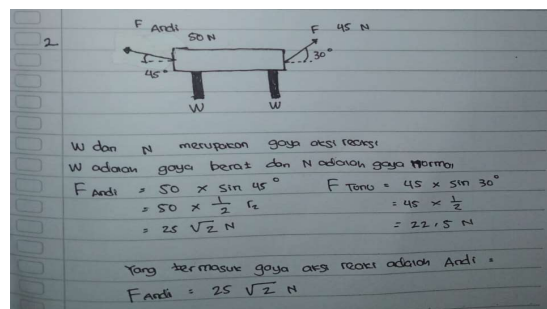 2
F Andi
50 N
F 45 N
45°
30°
W W
W dan N merupakan gaya aksi reaksi
W adalah gaya berat dan N adalah gaya Normal
F Andi = 50 × sin 45° F Tono = 45 × sin 30°
= 50 × 1/2 √2 = 45 × 1/2
= 25 √2 N = 22,5 N
Yang termasuk gaya aksi reaksi adalah Andi =
F Andi = 25 √2 N